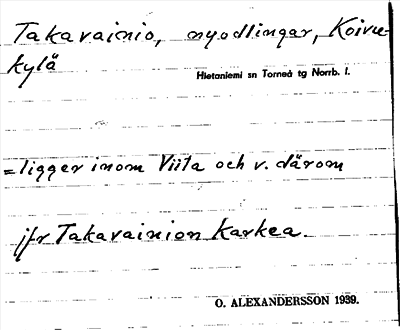 Takavainio, nyodlingar, Koivu-
kylä
Hietaniemi sn Torneå tg Norrb. l.
= ligger inom Viita och v. därom
jfr Takavainion Karkea.
O. ALEXANDERSSON 1939.